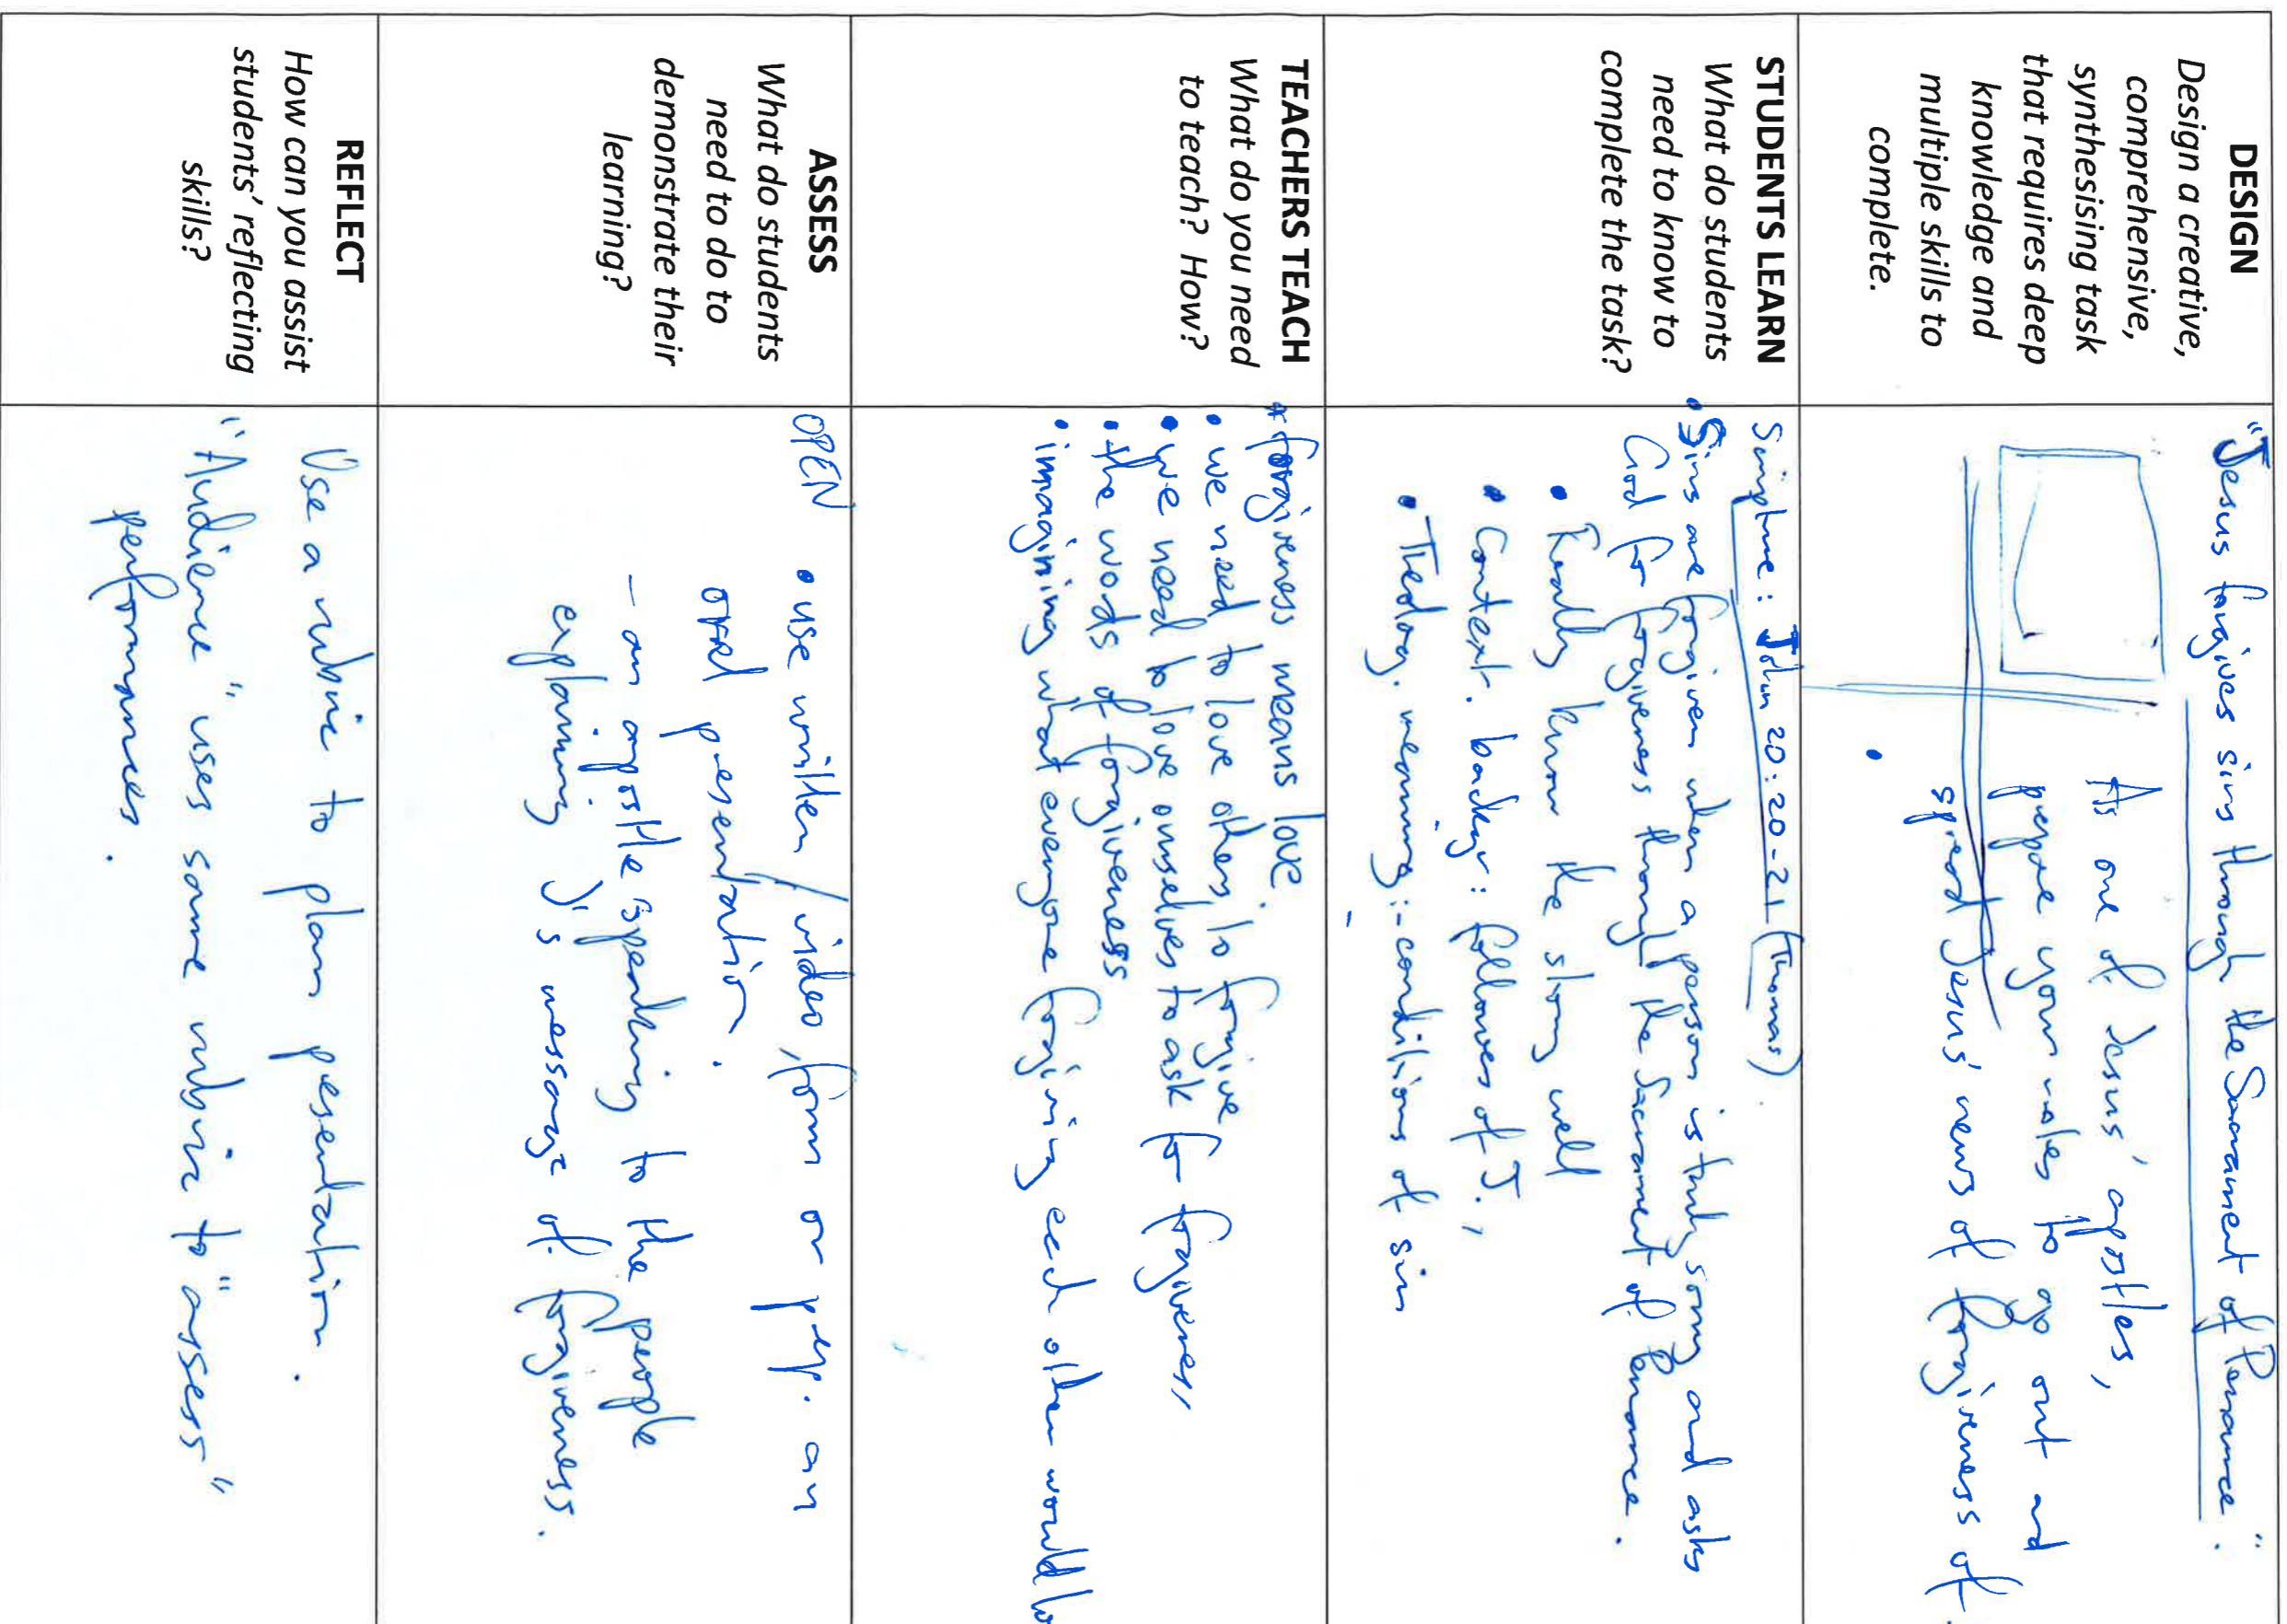 DESIGN
Design a creative,
comprehensive,
synthesising task
that requires deep
knowledge and
multiple skills to
complete.
"Jesus forgives sins through the Sacrament of Penance".
As one of Jesus' apostles,
prepare your notes to go out and
spread Jesus' news of forgiveness of
STUDENTS LEARN
What do students
need to know to
complete the task?
Scripture: John 20:20-21 (Thomas)
• Sins are forgiven when a person is truly sorry and asks
God for forgiveness through the Sacrament of Penance.
• Really know the story well
• Context. backgr: followers of J.,
• Theolog. meaning:- conditions of sin
TEACHERS TEACH
What do you need
to teach? How?
* forgiveness means love.
• we need to love others to forgive
• we need to love ourselves to ask for forgiveness
• the words of forgiveness
• imagining what everyone forgiving each other would
ASSESS
What do students
need to do to
demonstrate their
learning?
OPEN • use written / video, form or prep. an
oral presentation.
- an apostle speaking to the people
explaining J's message of forgiveness.
REFLECT
How can you assist
students' reflecting
skills?
Use a rubric to plan presentation.
"Audience" uses same rubric to "assess"
performances.